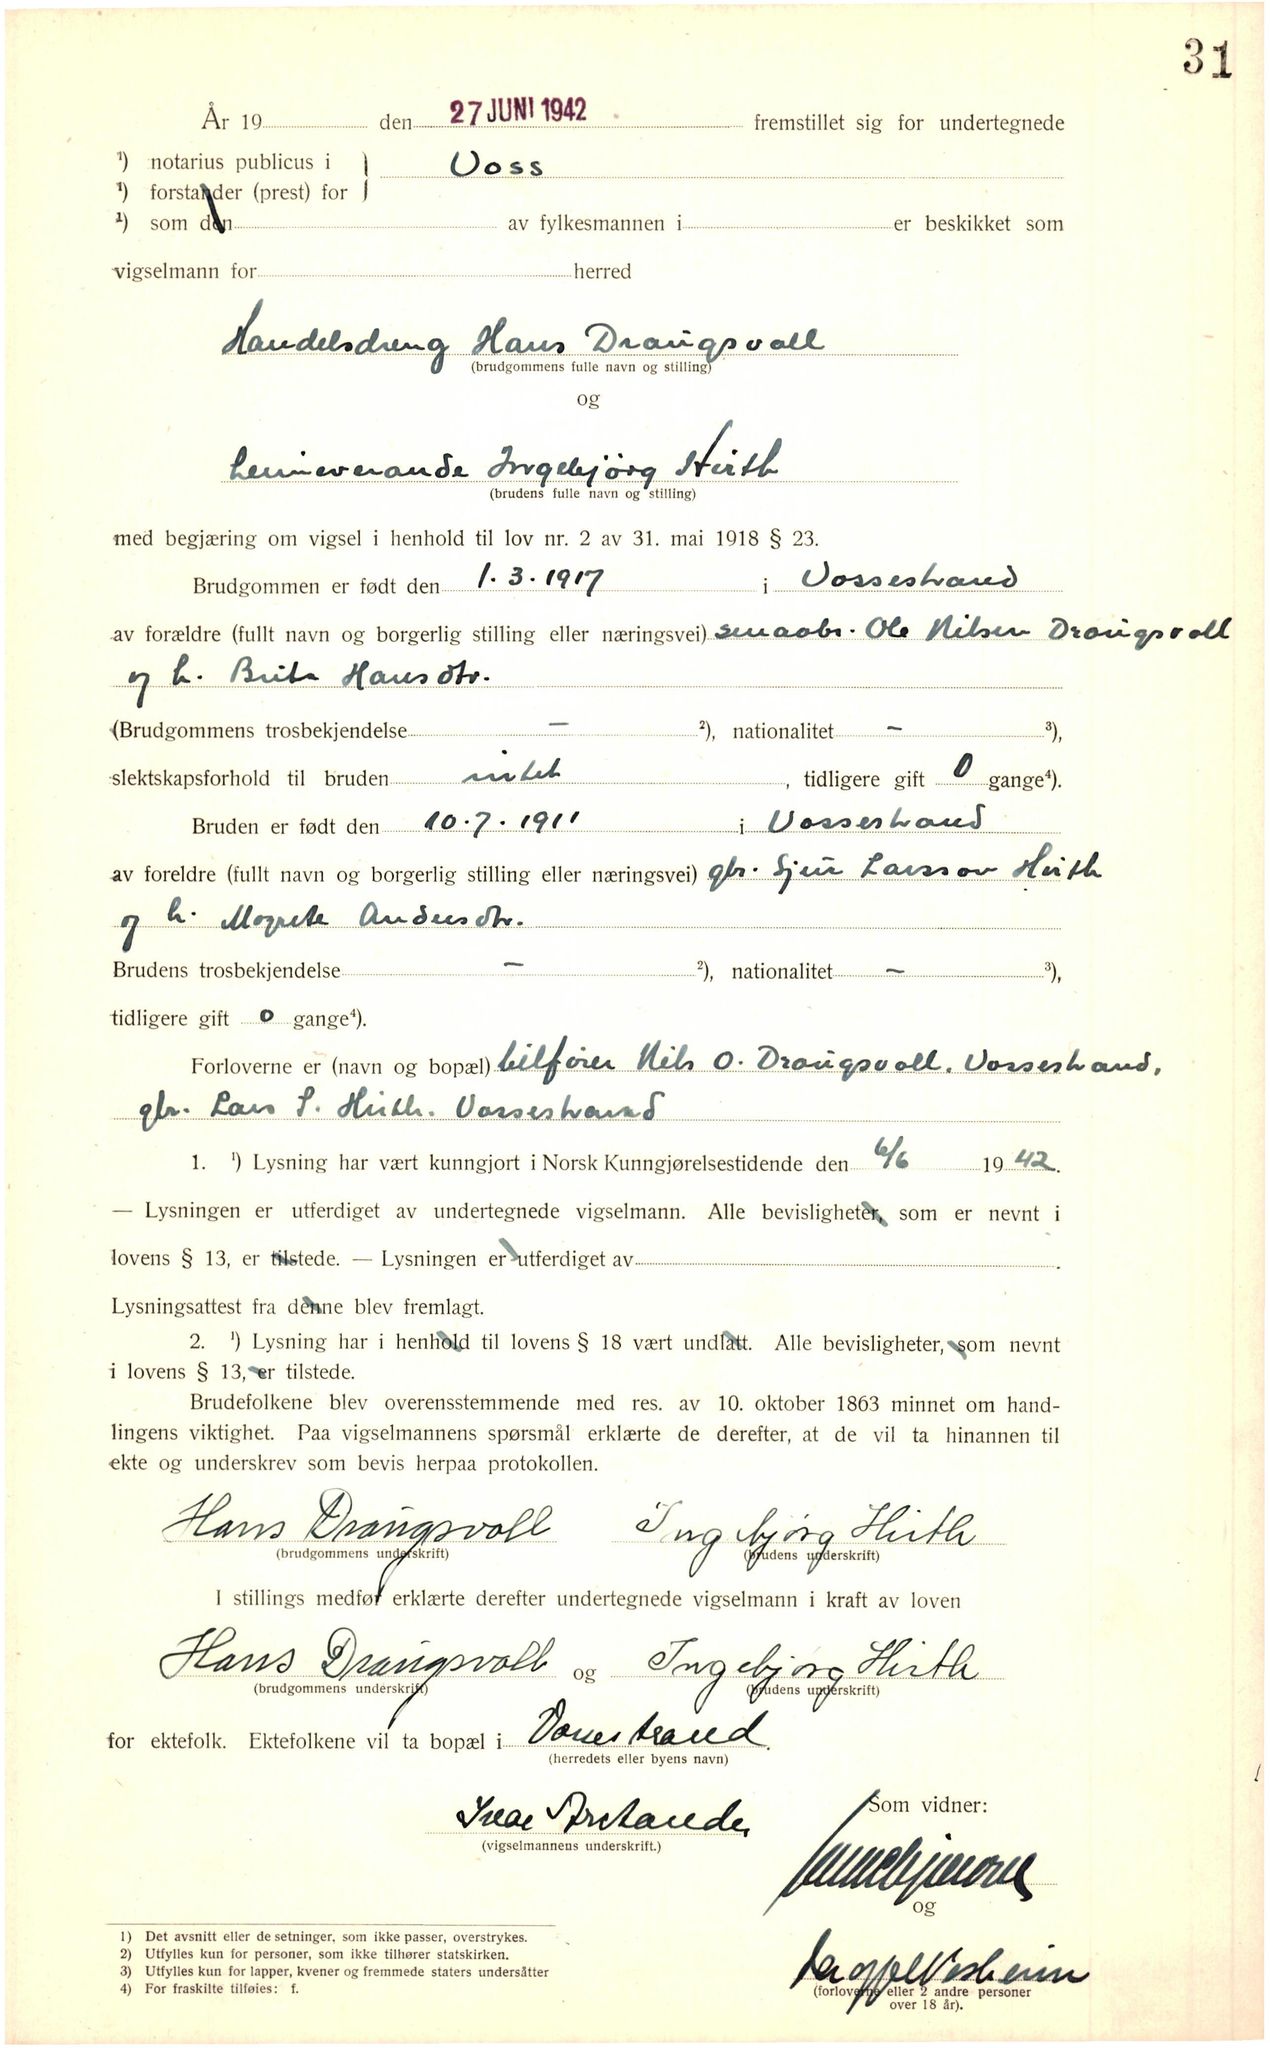 31
År 19 den 27 JUNI 1942 fremstillet sig for undertegnede
¹) notarius publicus i } Voss
¹) forstander (prest) for
¹) som den av fylkesmannen i er beskikket som
vigselmann for herred
Handelsdreng Hans Draugsvoll
(brudgommens fulle navn og stilling)
og
heimeverande Ingebjörg Hirth
(brudens fulle navn og stilling)
med begjæring om vigsel i henhold til lov nr. 2 av 31. mai 1918 § 23.
Brudgommen er født den 1.3.1917 i Vossestrand
av forældre (fullt navn og borgerlig stilling eller næringsvei) smaabr. Ole Nilsen Draugsvoll
og h. Brita Hansdtr.
(Brudgommens trosbekjendelse – ²), nationalitet – ³),
slektskapsforhold til bruden intet, tidligere gift 0 gange⁴).
Bruden er født den 10.7.1911 i Vossestrand
av foreldre (fullt navn og borgerlig stilling eller næringsvei) gbr. Sjur Larsson Hirth
og h. Magrete Andersdtr.
Brudens trosbekjendelse – ²), nationalitet – ³),
tidligere gift 0 gange⁴).
Forloverne er (navn og bopæl) bilförer Nils O. Draugsvoll, Vossestrand,
gbr. Lars S. Hirth. Vossestrand
1. ¹) Lysning har vært kunngjort i Norsk Kunngjørelsestidende den 6/6 1942.
— Lysningen er utferdiget av undertegnede vigselmann. Alle bevisligheter, som er nevnt i
lovens § 13, er tilstede. — Lysningen er utferdiget av .
Lysningsattest fra denne blev fremlagt.
2. ¹) Lysning har i henhold til lovens § 18 vært undlatt. Alle bevisligheter, som nevnt
i lovens § 13, er tilstede.
Brudefolkene blev overensstemmende med res. av 10. oktober 1863 minnet om hand-
lingens viktighet. Paa vigselmannens spørsmål erklærte de derefter, at de vil ta hinannen til
ekte og underskrev som bevis herpaa protokollen.
Hans Draugsvoll Ingebjørg Hirth
(brudgommens underskrift) (brudens underskrift)
I stillings medfør erklærte derefter undertegnede vigselmann i kraft av loven
Hans Draugsvoll og Ingebjørg Hirth
(brudgommens underskrift) (brudens underskrift)
for ektefolk. Ektefolkene vil ta bopæl i Vossestrand.
(herredets eller byens navn)
Som vidner:
Ivar
(vigselmannens underskrift.)
og
(forloverne eller 2 andre personer
over 18 år).
1) Det avsnitt eller de setninger, som ikke passer, overstrykes.
2) Utfylles kun for personer, som ikke tilhører statskirken.
3) Utfylles kun for lapper, kvener og fremmede staters undersåtter
4) For fraskilte tilføies: f.